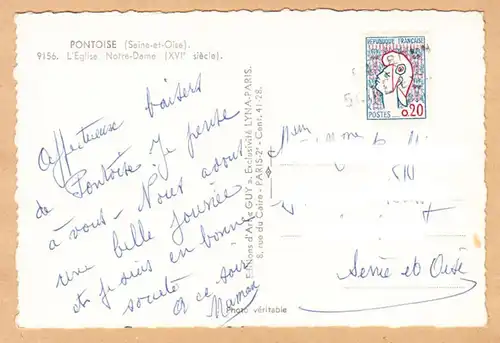 PONTOISE (Seine-et-Oise).
9156. L'Eglise Notre-Dame (XVIe siècle).
Affectueux baisers
de Pontoise. Je pense
à vous - Nous avons
une belle journée
et je suis en bonne
société A ce soir
Maman
Editions d'Art GUY a. Exclusivité LYNA-PARIS.
8, rue du Caire - PARIS-2e - Cent. 41-28.
Photo véritable
REPUBLIQUE FRANÇAISE
POSTES 0,20
Seine et Oise